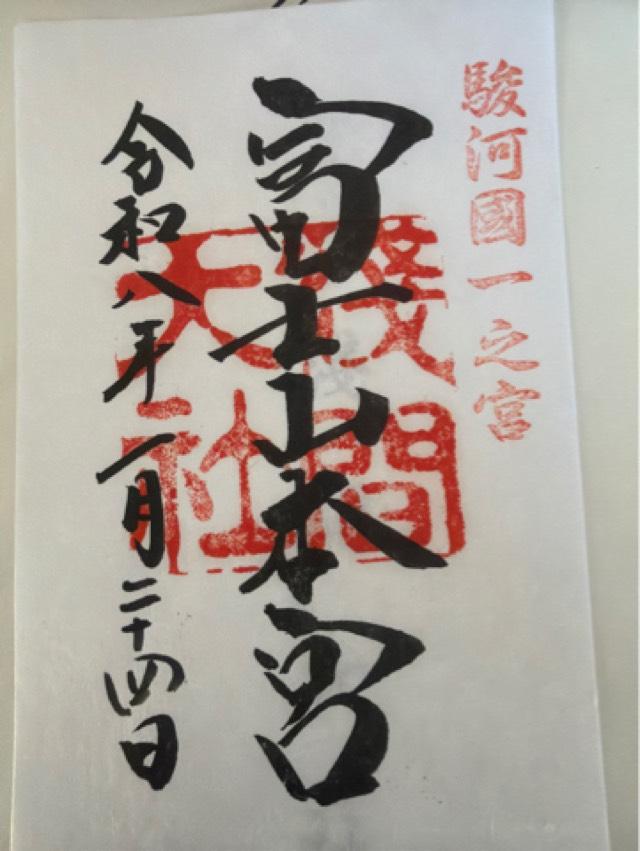 駿河國一之宮
富士山本宮
淺間
大社
令和八年一月二十四日